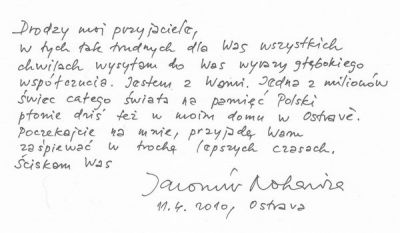 Drodzy moi przyjaciele,
w tych tak trudnych dla Was wszystkich
chwilach wysyłam do Was wyrazy głębokiego
współczucia. Jestem z Wami. Jedna z milionów
świec całego świata na pamięć Polski
płonie dziś też w moim domu w Ostravě.
Poczekajcie na mnie, przyjadę Wam
zaśpiewać w trochę lepszych czasach.
Ściskam Was
Jaromír Nohavica
11.4.2010, Ostrava